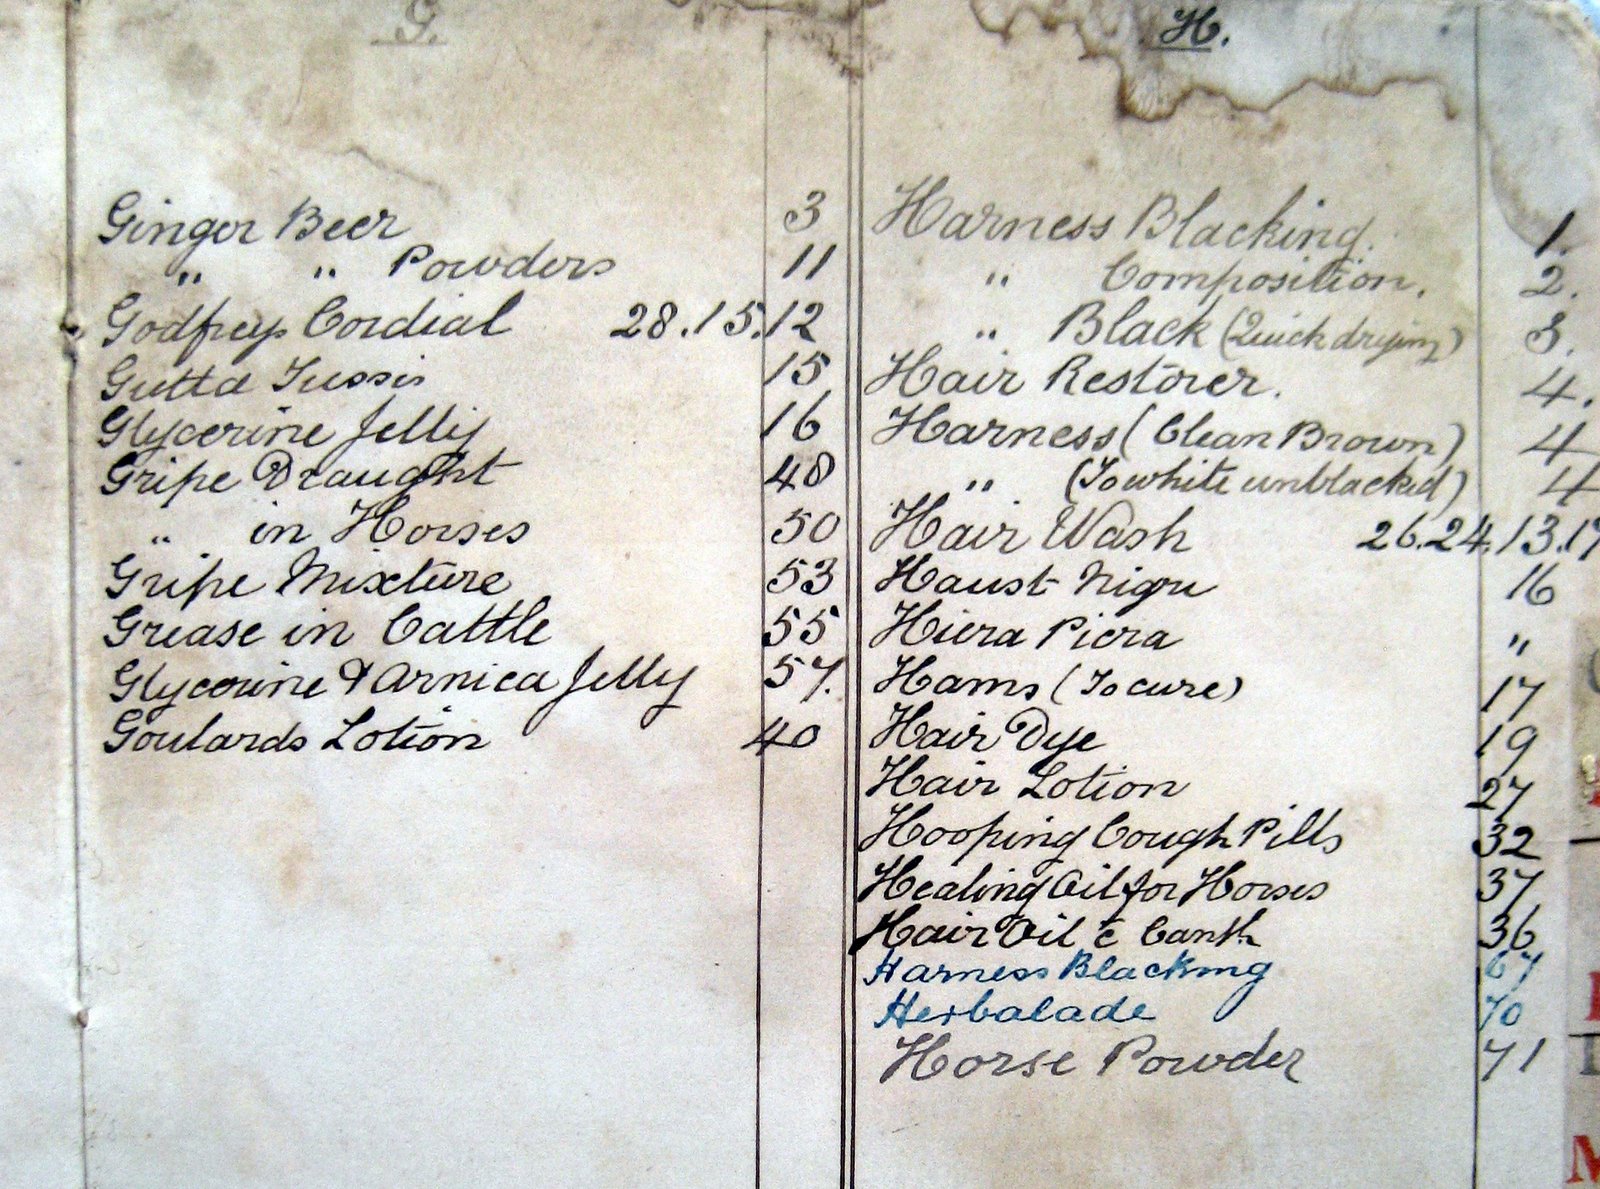 G.
Ginger Beer 3
" " Powders 11
Godfreys Cordial 28.15.12
Gutta Tussis 15
Glycerine Jelly 16
Gripe Draught 48
" in Horses 50
Gripe Mixture 53
Grease in Cattle 55
Glycerine & Arnica Jelly 57.
Goulards Lotion 40
H.
Harness Blacking. 1.
" Composition. 2.
" Black (Quick drying) 3.
Hair Restorer. 4.
Harness (Clean Brown) 4
" (To white unblacked) 4
Hair Wash 26.24.13.17
Haust Nigru 16
Hiera Picra "
Hams (To cure) 17
Hair Dye 19
Hair Lotion 27
Hooping Cough Pills 32
Healing Oil for Horses 37
Hair Oil c̄ Canth 36
Harness Blacking 67
Herbalade 70
Horse Powder 71